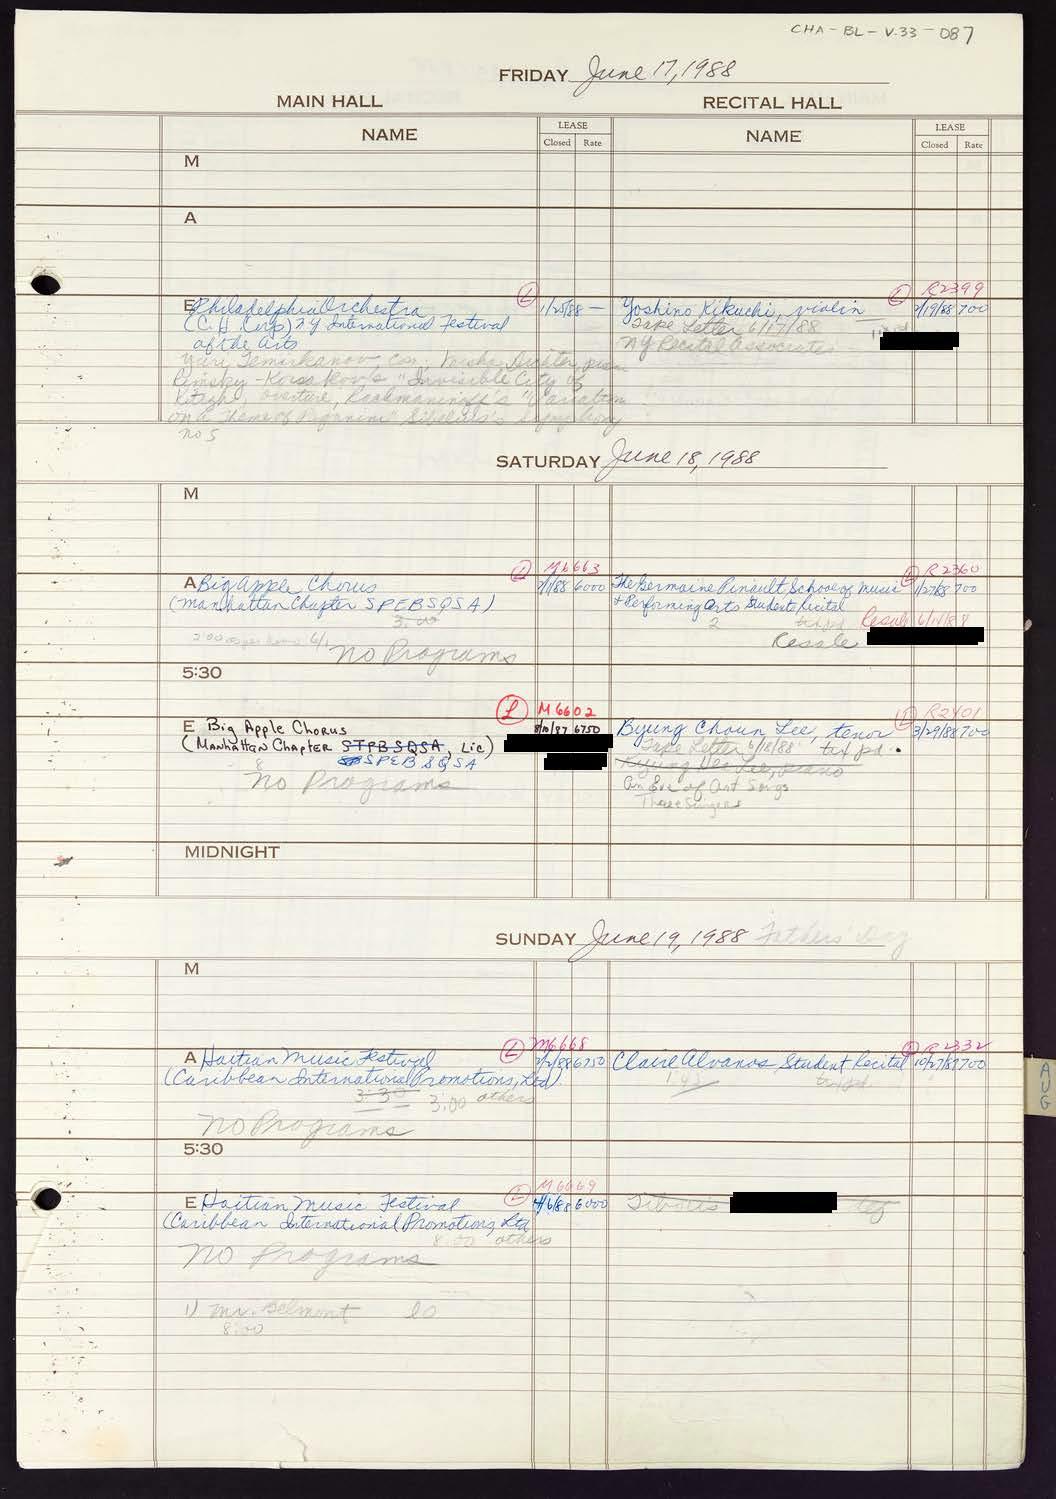 CHA-BL-V.33-087
FRIDAY June 17, 1988
MAIN HALL
RECITAL HALL
NAME
LEASE
Closed Rate
NAME
LEASE
Closed Rate
M
A
E Philadelphia Orchestra
(C.H. Corp) NY International Festival
of the Arts
L
1/25/88 —
Yuri Temirkanov, con;
Rimsky-Korsakov's "Invisible City of
Kitezh, overture, Rachmaninoff's "Variations
on a Theme of Paganini Sibelius's Symphony
no 5
L R2399
Yoshino Kikuchi, violin
/19/88 700
Tape Letter 6/17/88
NY Recital Associates
SATURDAY June 18, 1988
M
L M6663
A Big Apple Chorus
/1/88 6000
(Manhattan Chapter SPEBSQSA)
3:00
No Programs
L R2360
The Germaine Pinault School of Music
1/27/88 700
& Performing Arts Student Recital
2
tax pd
Ressle
5:30
L M6602
E Big Apple Chorus
8/10/87 6750
(Manhattan Chapter STPBSQSA, Lic)
SPEBSQSA
8
No Programs
L R2401
Byung Choun Lee, tenor
3/29/88 700
Tape Letter 6/18/88 tax pd.
Kyung Hee Lee, piano
An Eve of Art Songs
Three Singers
MIDNIGHT
SUNDAY June 19, 1988 Fathers' Day
M
L M6668
A Haitian Music Festival
/2/88 6750
(Caribbean International Promotions, Ltd)
3:30 3:00 others
No Programs
L R2332
Claire Alvanos Student Recital
10/27/87 700
tax pd
5:30
L M6669
E Haitian Music Festival
4/6/88 6000
(Caribbean International Promotions, Ltd
8:00 others
No Programs
1) Mr. Belmont
8:00
AUG